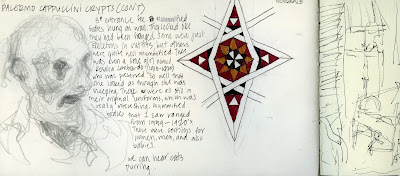 PALERMO CAPPUCCINI CRYPTS (CON'T)
entrance fee mummified
bodies hung on wall. They looked like
they had been hanged. Some were just
skeletons in outfits but others
were quite well mummified. There
was even a little girl named
Lombardo (1918-1920)
who was preserved so well that
she looked as though she was
sleeping. There were all still in
their original "uniforms, which was
really interesting. Mummified
bodies that I saw ranged
from 1599 - 1920's
There were sections for
women, men, and also
babies!
We can hear cats
purring